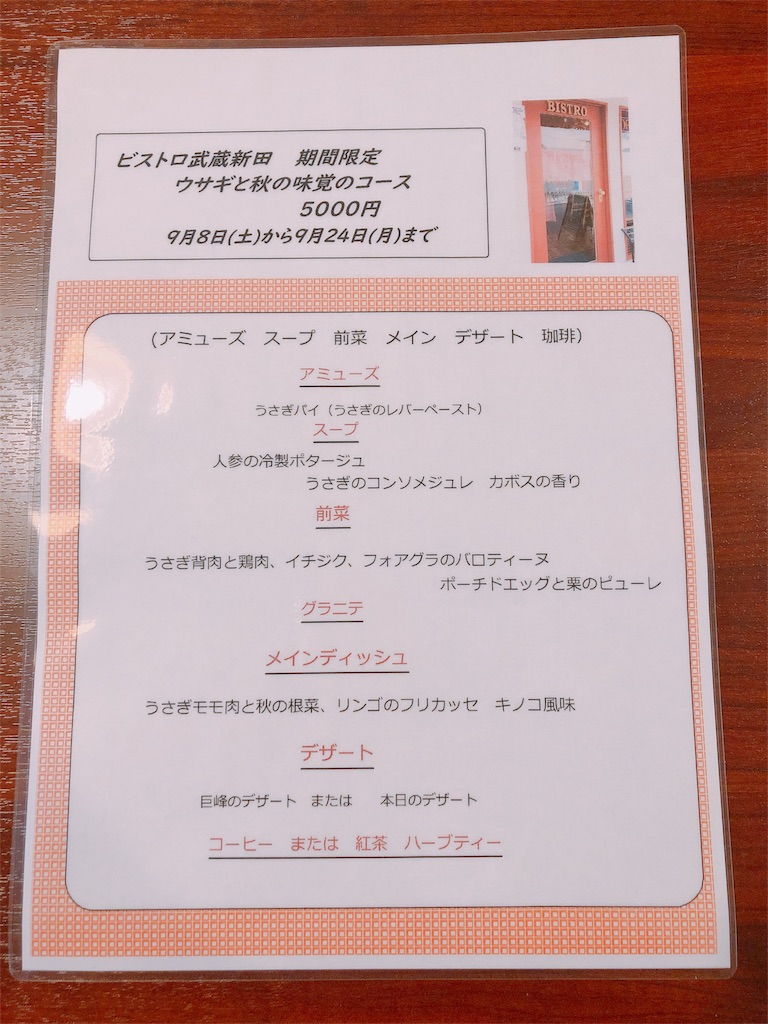 BISTRO
ビストロ武蔵新田　期間限定
ウサギと秋の味覚のコース
5000円
9月8日(土)から9月24日(月)まで
(アミューズ　スープ　前菜　メイン　デザート　珈琲)
アミューズ
うさぎパイ（うさぎのレバーペースト）
スープ
人参の冷製ポタージュ
うさぎのコンソメジュレ　カボスの香り
前菜
うさぎ背肉と鶏肉、イチジク、フォアグラのバロティーヌ
ポーチドエッグと栗のピューレ
グラニテ
メインディッシュ
うさぎモモ肉と秋の根菜、リンゴのフリカッセ　キノコ風味
デザート
巨峰のデザート　または　　本日のデザート
コーヒー　または　紅茶　ハーブティー